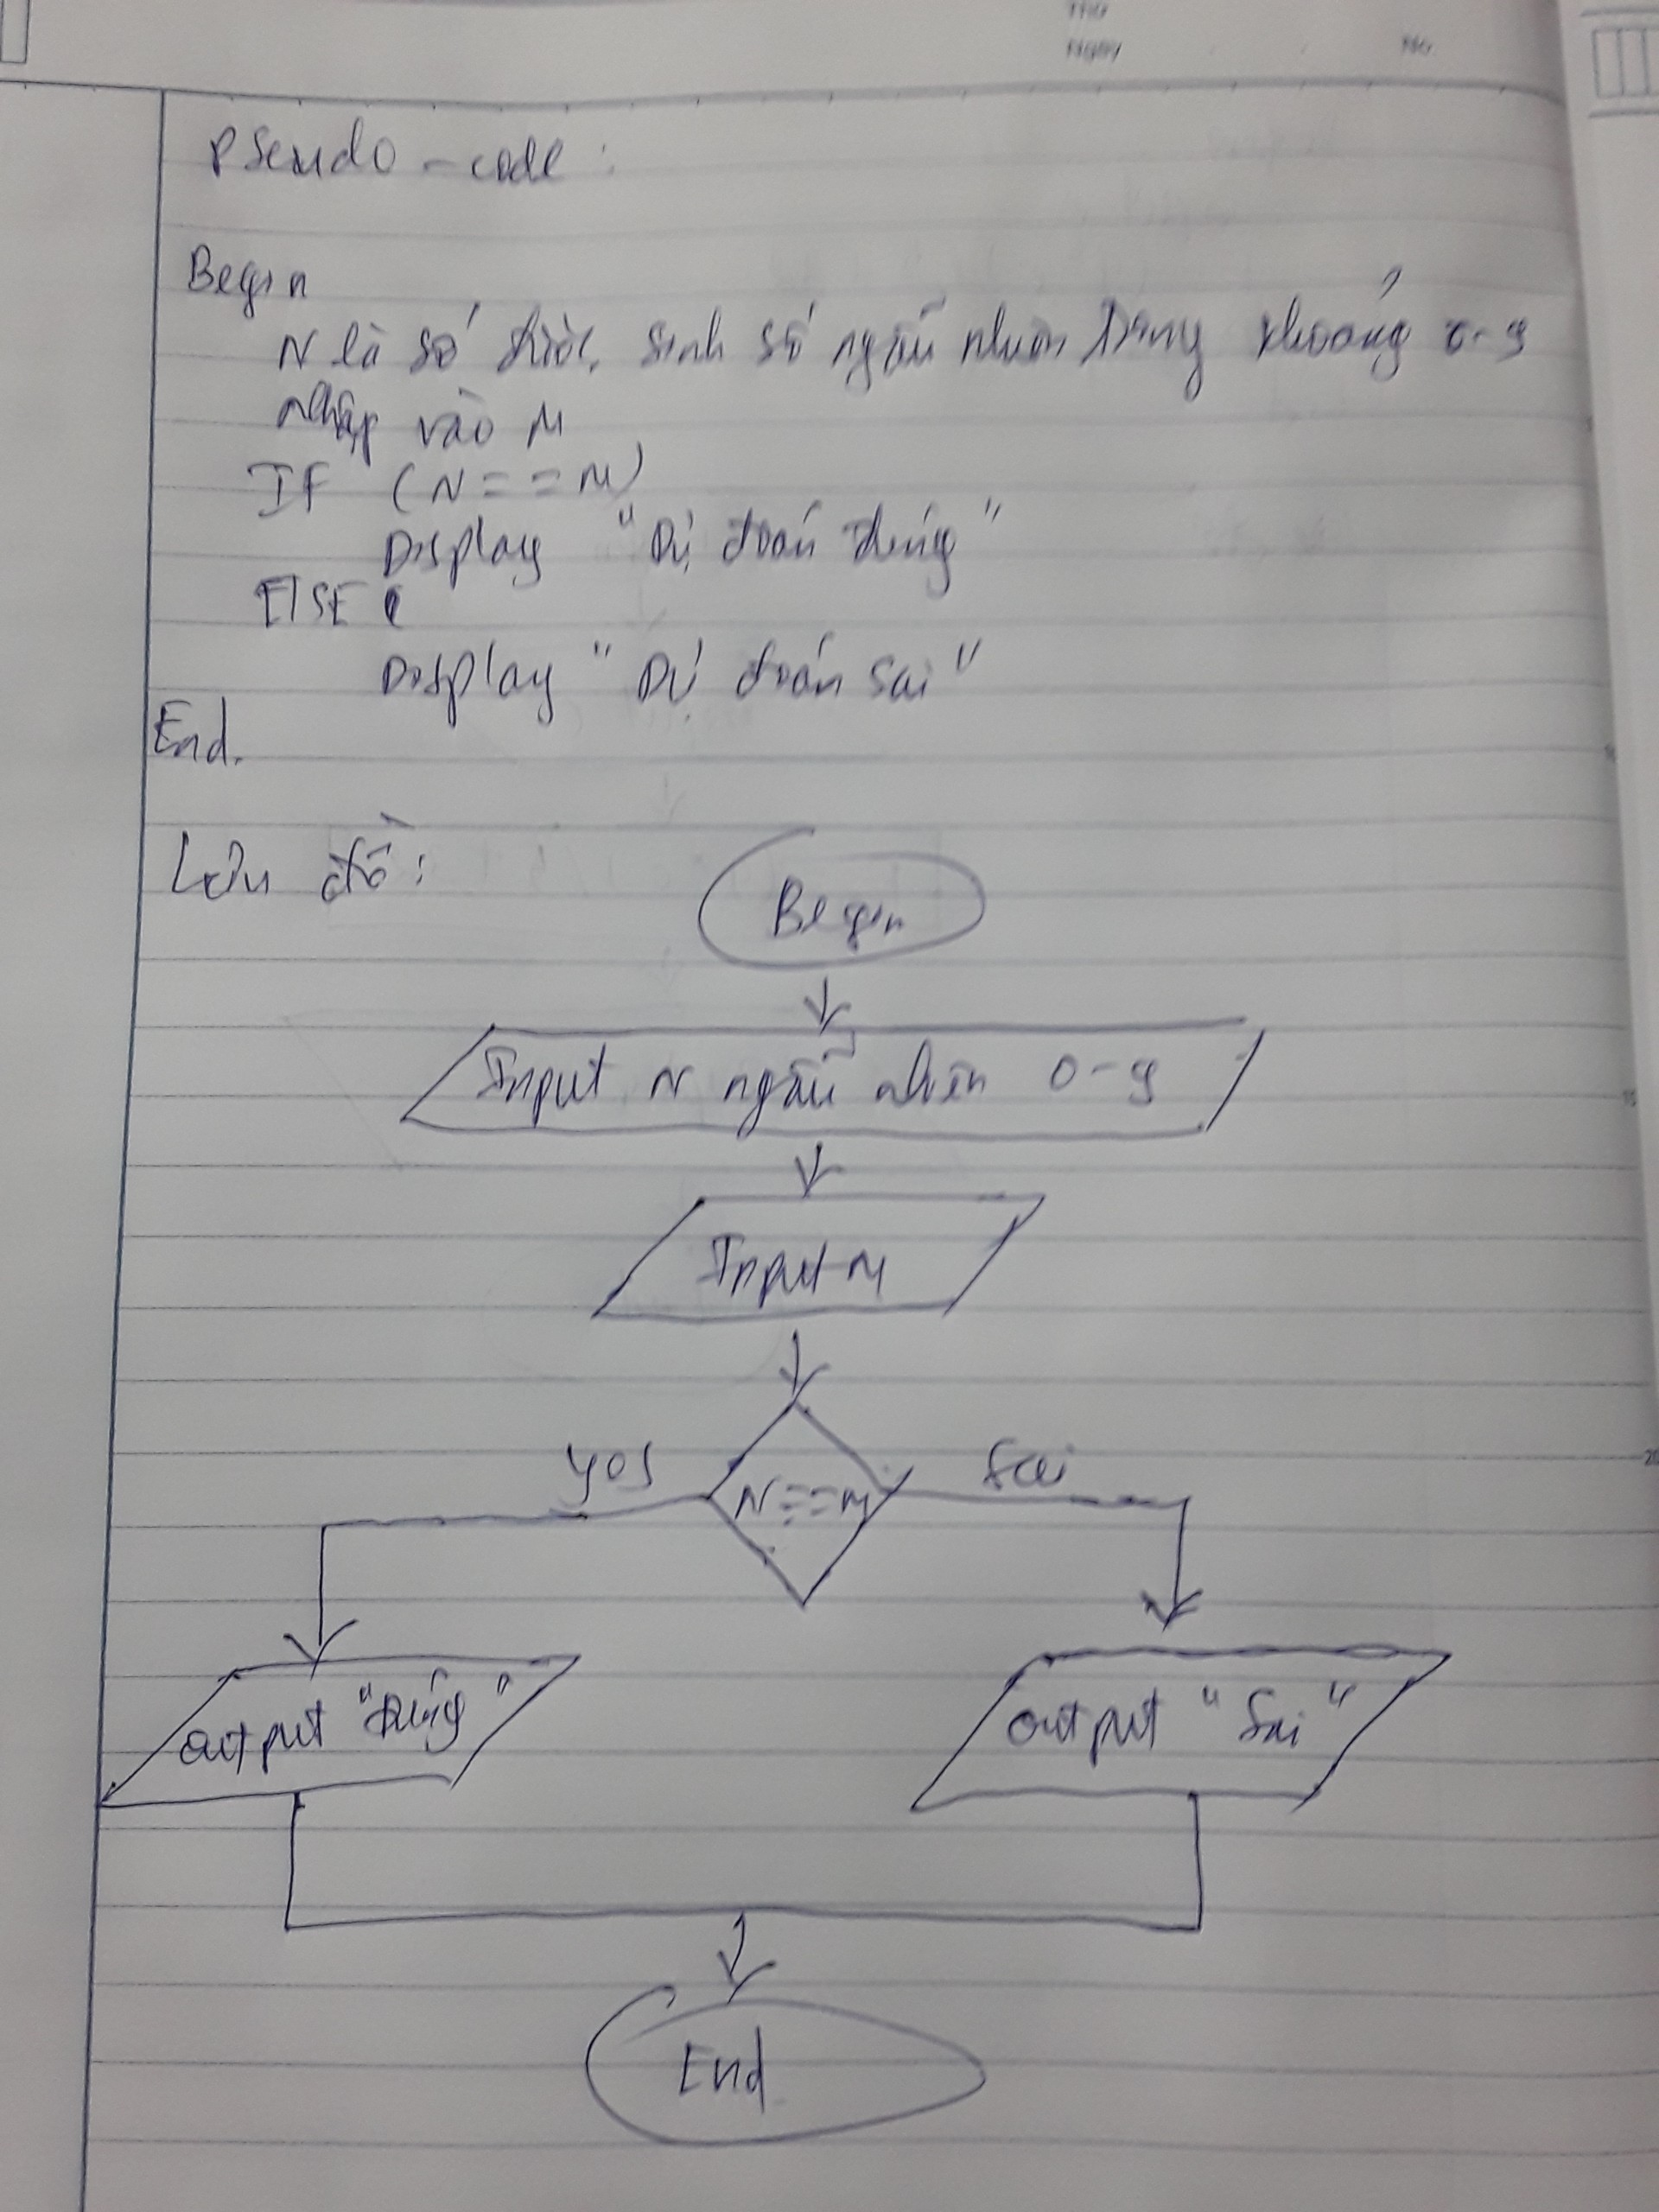 Thứ
Ngày No.
Pseudo-code:
Begin
N là số được sinh số ngẫu nhiên trong khoảng 0-9
nhập vào M
IF (N==M)
Display "Dự đoán đúng"
ElSE
Display "Dự đoán sai"
End.
Lưu đồ:
Begin
Input N ngẫu nhiên 0-9
Input M
yes
N==M
Sai
output "Đúng"
output "Sai"
End
15
20